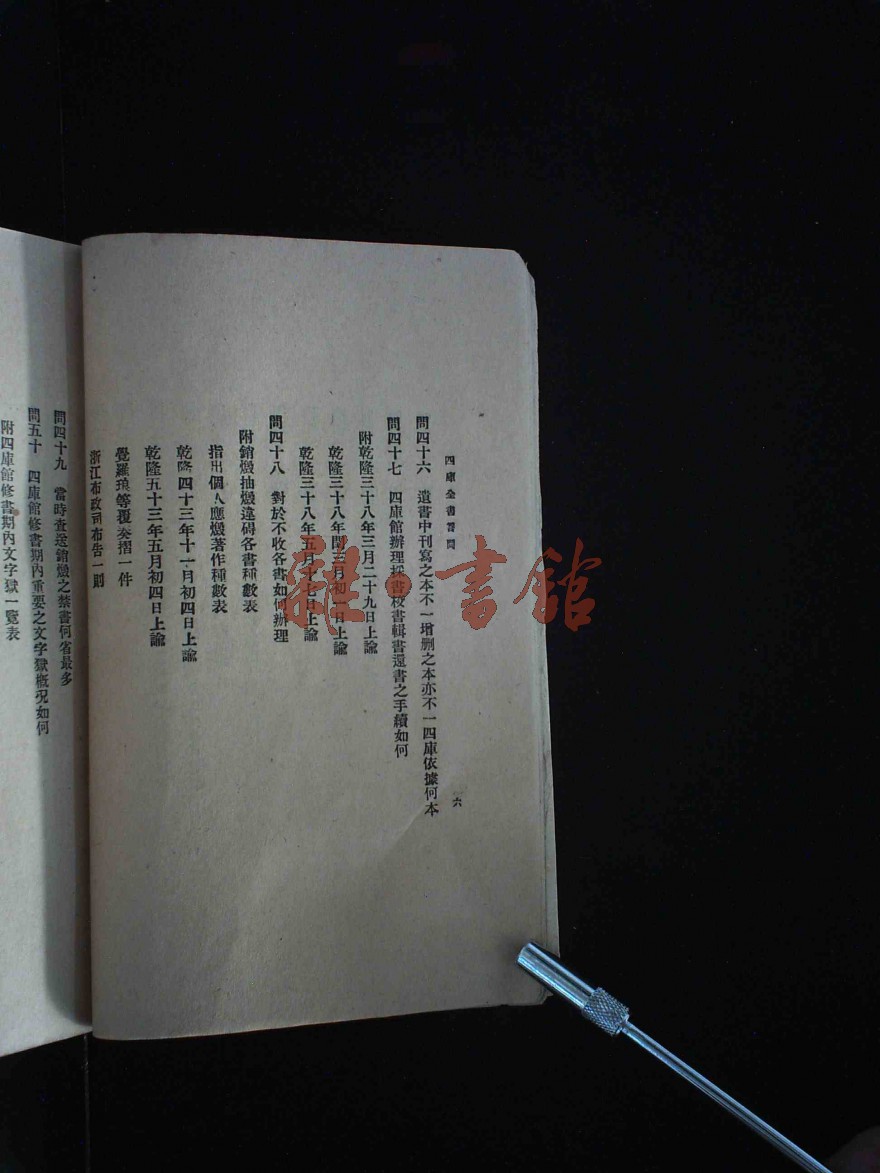 四庫全書答問
六
問四十六　遺書中刊寫之本不一增删之本亦不一四庫依據何本
問四十七　四庫館辦理採書校書輯書還書之手續如何
附乾隆三十八年三月二十九日上諭
乾隆三十八年閏三月初一日上諭
乾隆三十八年五月十七日上諭
問四十八　對於不收各書如何辦理
附銷燬抽燬違碍各書種數表
指出個人應燬著作種數表
乾隆四十三年十一月初四日上諭
乾隆五十三年五月初四日上諭
覺羅琅等覆奏摺一件
浙江布政司布告一則
問四十九　當時查送銷燬之禁書何省最多
問五十　四庫館修書期內重要之文字獄概况如何
附四庫館修書期內文字獄一覽表
書館